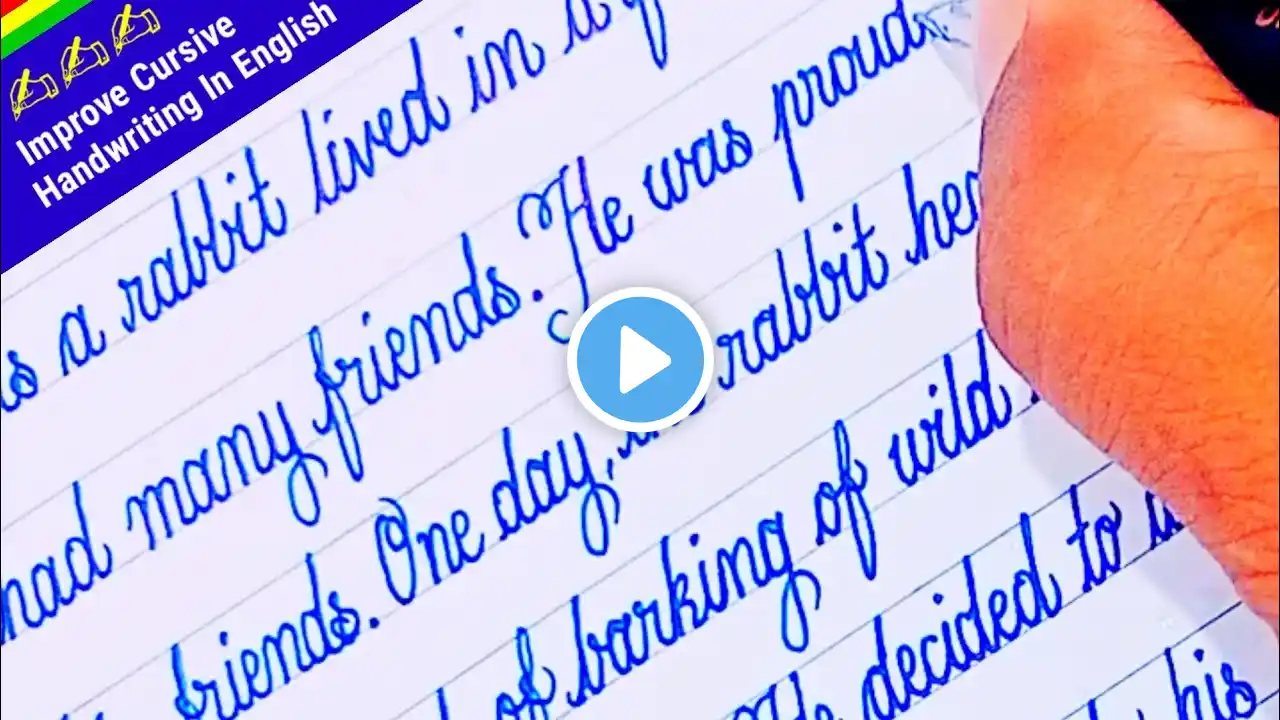 Improve Cursive
Handwriting In English
a rabbit lived in a
many friends. He was proud
friends. One day, rabbit
of barking of wild
He decided to
his